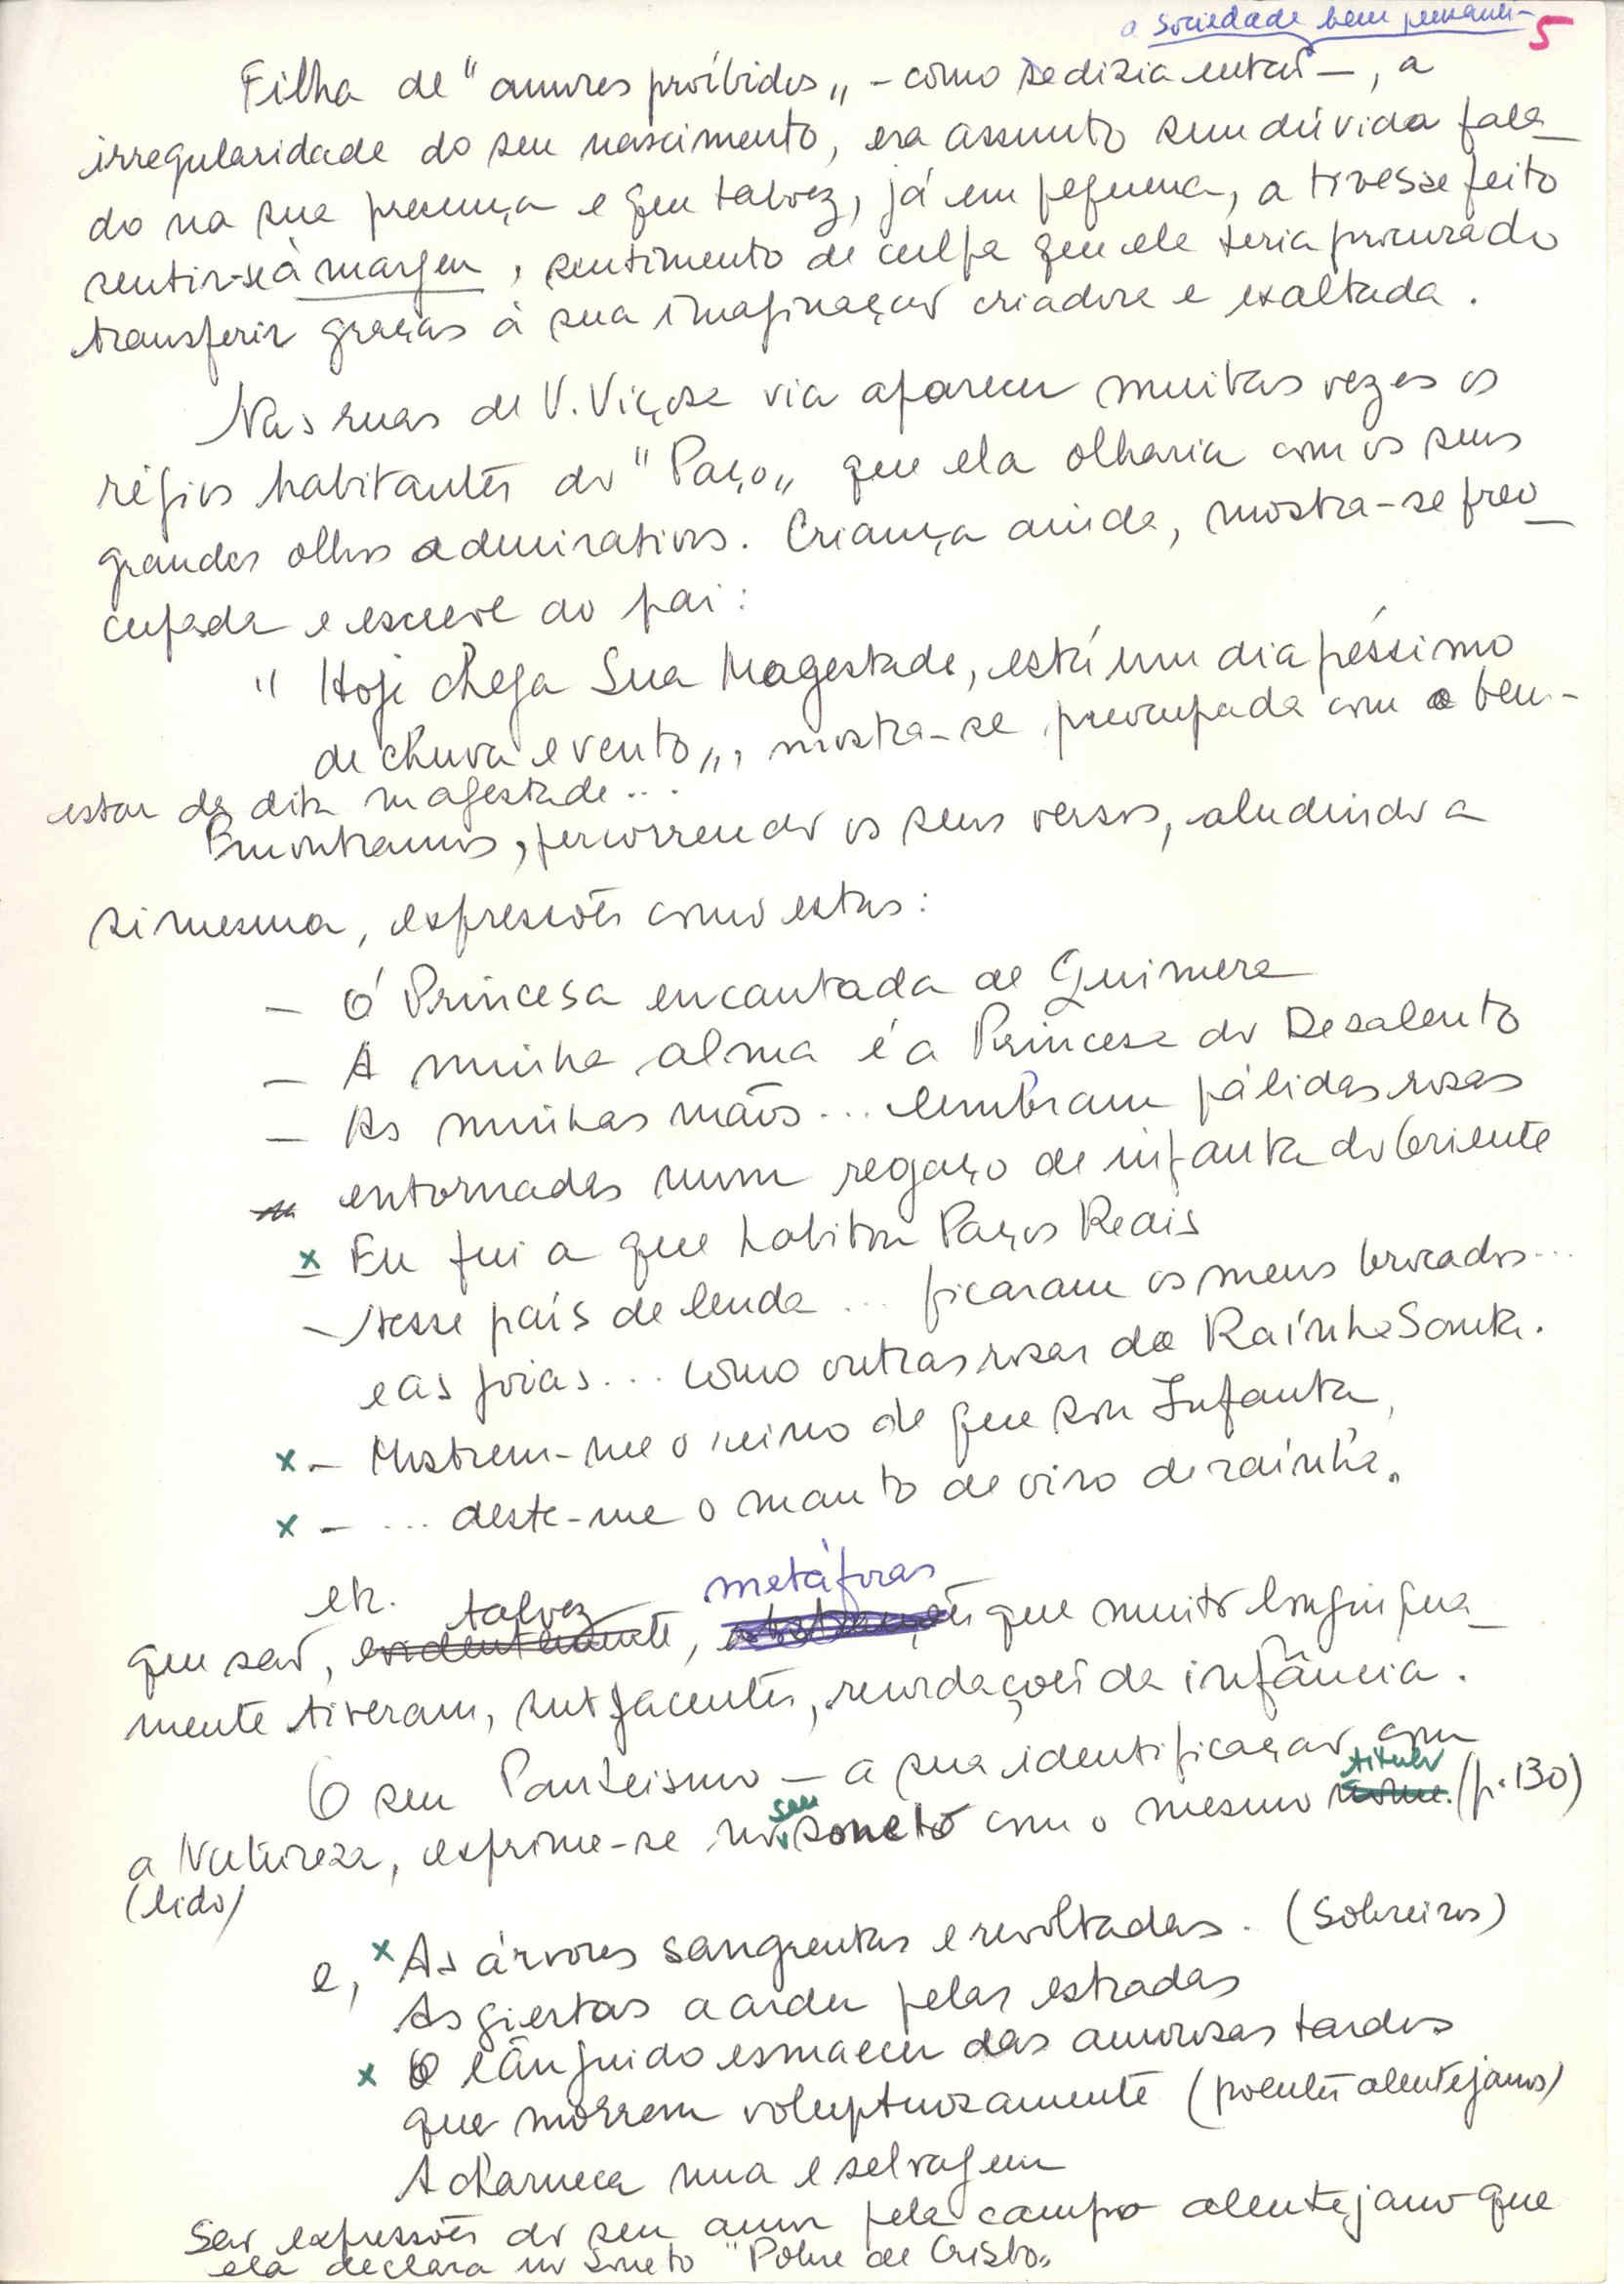 a sociedade bem pensan-
5
Filha de "amores proíbidos„ – como se dizia então –, a
irregularidade do seu nascimento, era assunto sem dúvida fala_
do na sua presença e que talvez, já em pequena, a tivesse feito
sentir-se à margem, sentimento de culpa que ela teria procurado
transferir graças à sua imaginação criadora e exaltada.
Nas ruas de V. Viçosa via aparecer muitas vezes os
régios habitantes do "Paço„ que ela olharia com os seus
grandes olhos admirativos. Criança ainda, mostra-se preo_
cupada e escreve ao pai:
" Hoje chega Sua Magestade, está um dia péssimo
de chuva e vento„, mostra-se preocupada com o bem-
estar da dita magestade...
Encontramos, percorrendo os seus versos, aludindo a
si mesma, expressões como estas:
– Ó Princesa encantada de Quimera
– A minha alma é a Princesa do Desalento
– As minhas mãos... lembram pálidas rosas
entornadas num regaço de infanta do Oriente
x – Eu fui a que habitou Paços Reais
– Nesse país de lenda ... ficaram os meus brocados...
e as joias... como outras rosas da Raínha Santa.
x – Mostrem-me o reino de que sou Infanta,
x – ... deste-me o manto de oiro de raínha„
etc.
talvez metáforas
que são, evidentemente, que muito longingua_
mente tiveram, subjacentes, recordações da infância.
O seu Panteismo – a sua identificação com
seu titulo
a Natureza, exprime-se no soneto com o mesmo nome. (p. 130)
(lido)
e, x As árvores sangrentas e revoltadas. (Sobreiros)
As giestas a arder pelas estradas
x O lânguido esmaecer das amorosas tardes
que morrem voluptuosamente (poentes alentejanos)
A charneca nua e selvagem
São expressões do seu amor pelo campo alentejano que
ela declara no soneto "Pobre de Cristo„